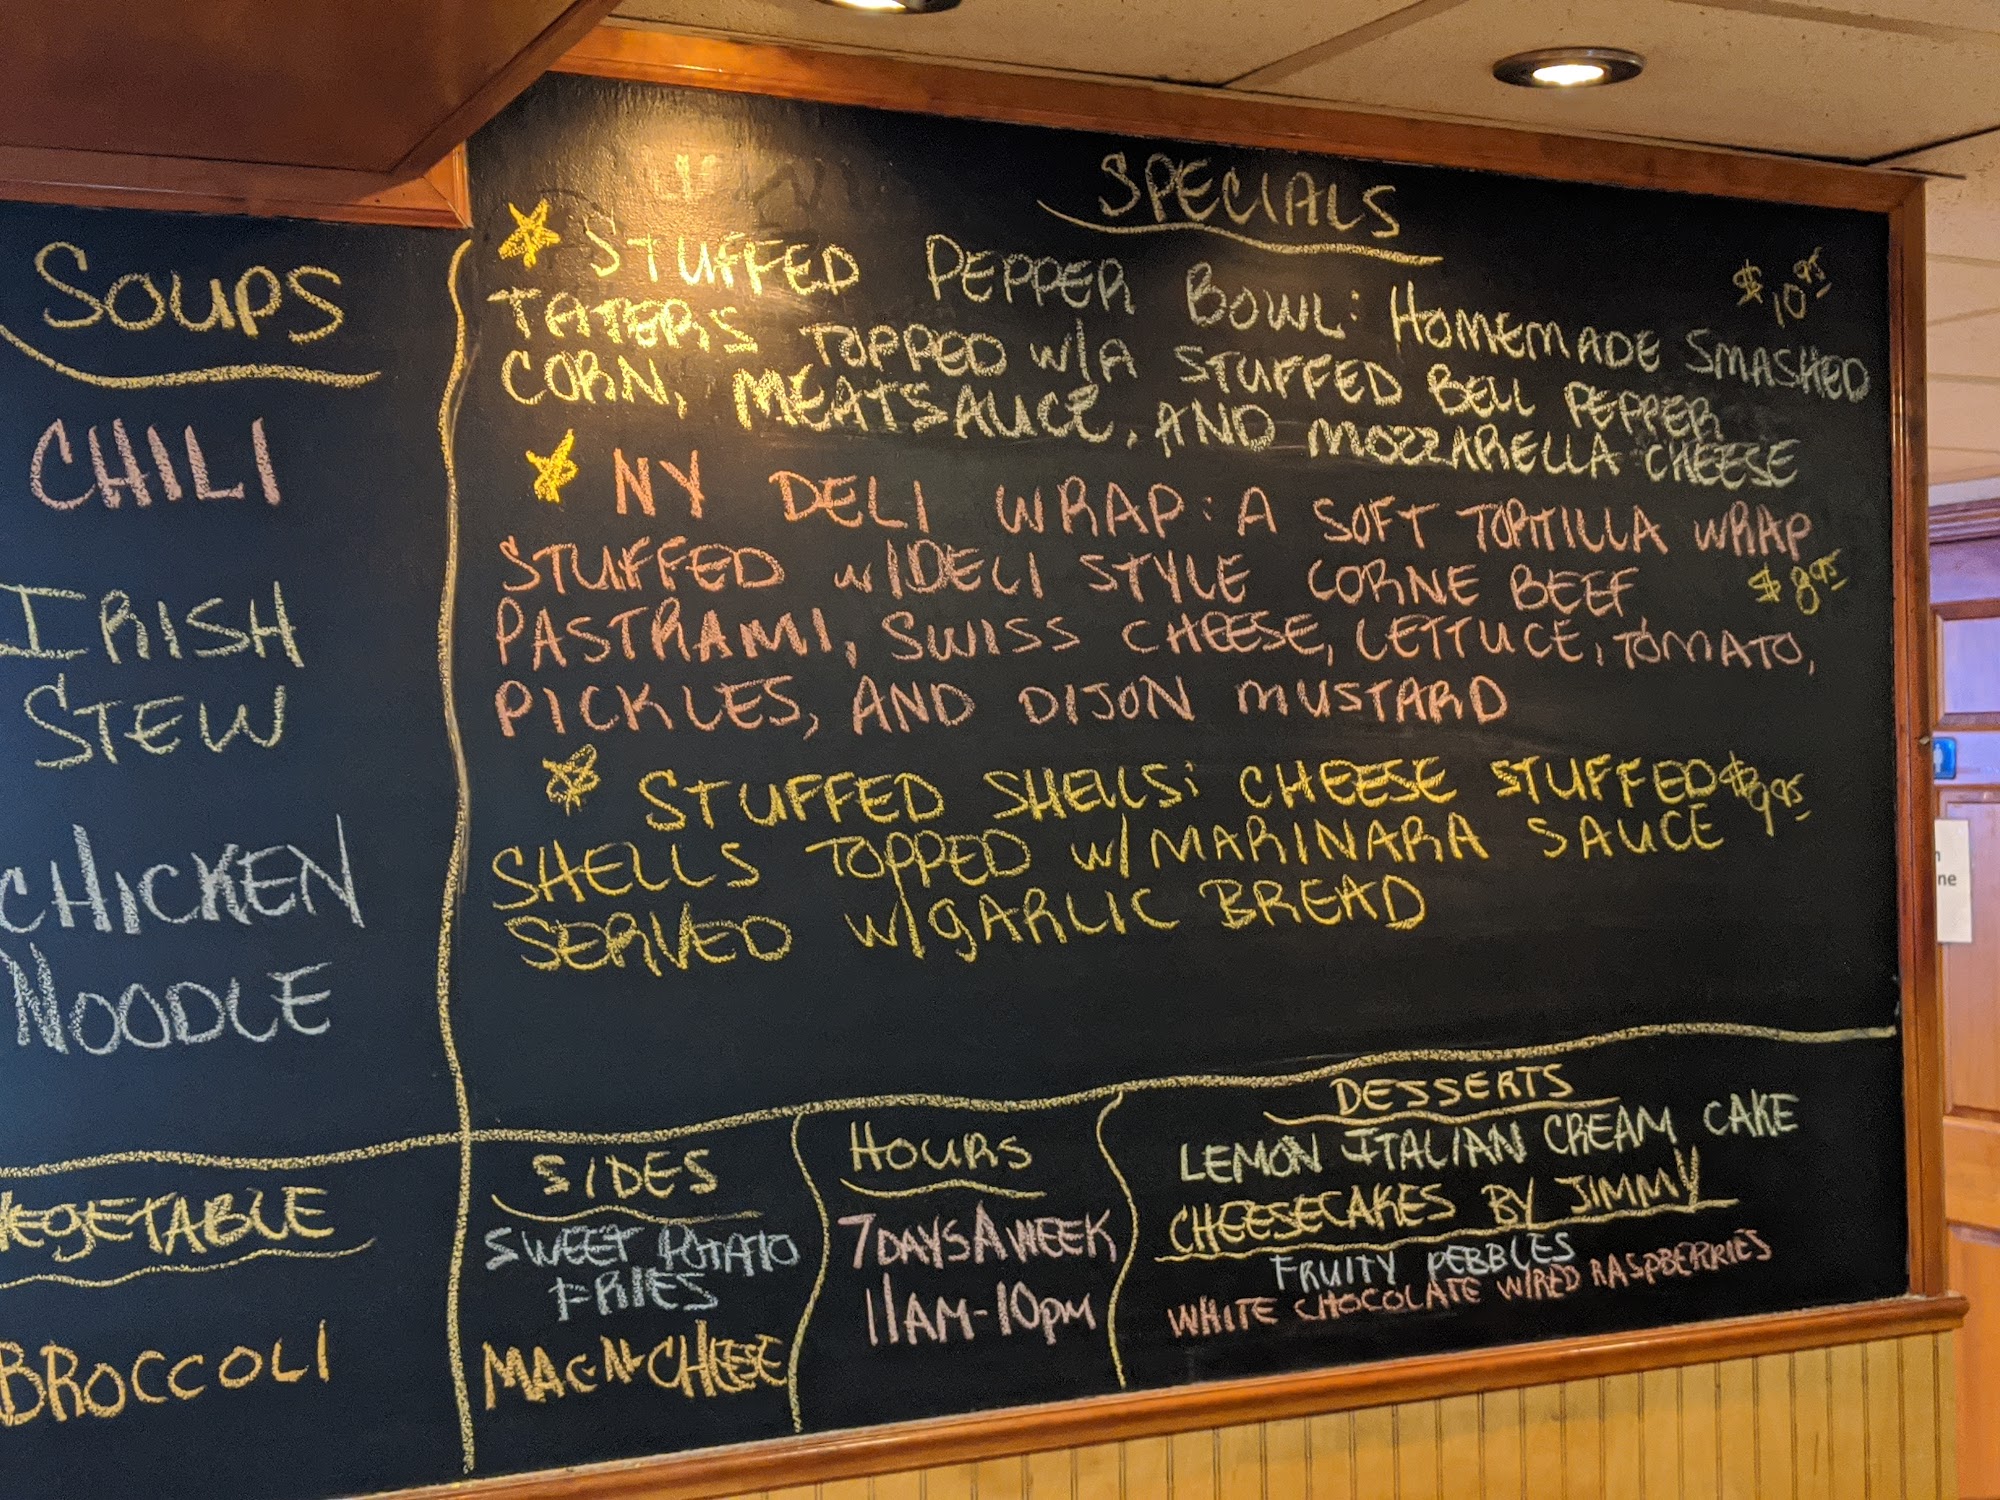 SOUPS
CHILI
IRISH
STEW
CHICKEN
NOODLE
VEGETABLE
BROCCOLI
SPECIALS
STUFFED PEPPER BOWL: HOMEMADE SMASHED
$10.95
TATERS TOPPED W/A STUFFED BELL PEPPER
CORN, MEATSAUCE, AND MOZZARELLA CHEESE
NY DELI WRAP: A SOFT TORTILLA WRAP
STUFFED W/DELI STYLE CORNE BEEF
$8.95
PASTRAMI, SWISS CHEESE, LETTUCE, TOMATO,
PICKLES, AND DIJON MUSTARD
STUFFED SHELLS: CHEESE STUFFED $9.95
SHELLS TOPPED W/MARINARA SAUCE
SERVED W/GARLIC BREAD
SIDES
SWEET POTATO
FRIES
MAC N CHEESE
HOURS
7 DAYS A WEEK
11AM-10PM
DESSERTS
LEMON ITALIAN CREAM CAKE
CHEESECAKES BY JIMMY
FRUITY PEBBLES
WHITE CHOCOLATE W/RED RASPBERRIES